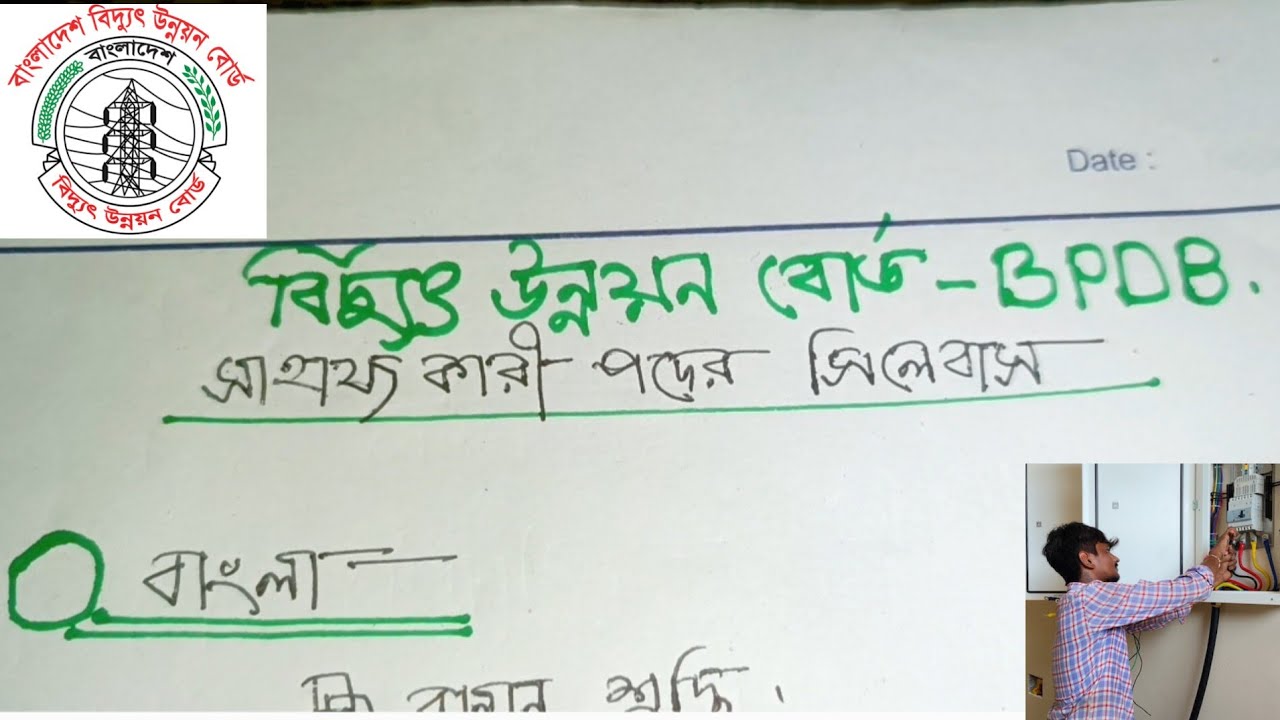 বাংলাদেশ বিদ্যুৎ উন্নয়ন বোর্ড
বাংলাদেশ
বিদ্যুৎ উন্নয়ন বোর্ড
Date :
বিদ্যুৎ উন্নয়ন বোর্ড - BPDB.
সাহায্যকারী পদের সিলেবাস
বাংলা
বানান শুদ্ধি।